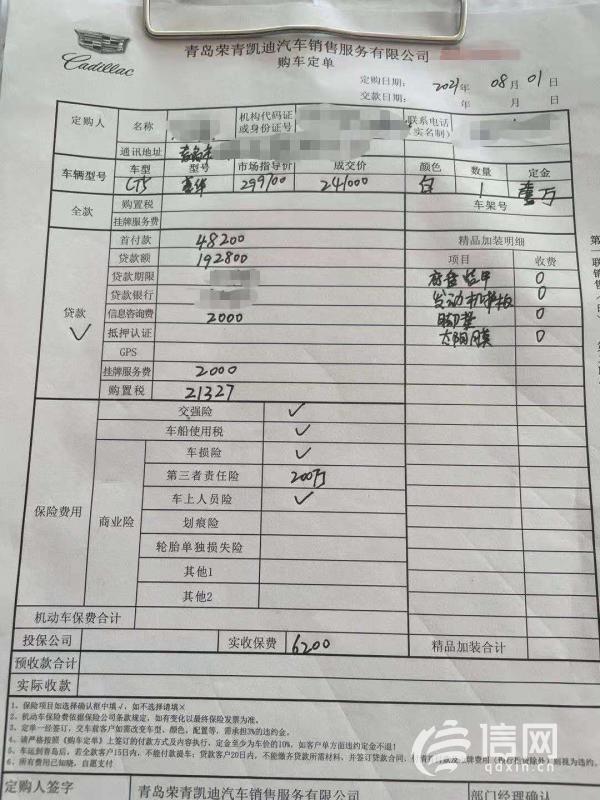 Cadillac
青岛荣青凯迪汽车销售服务有限公司
购车定单
定购日期: 2021年 08月 01日
交款日期: 年 月 日
定购人 名称 机构代码证或身份证号 联系电话(实名制)
通讯地址 青岛市
车辆型号 车型 型号 市场指导价 成交价 颜色 数量 定金
CT5 豪华 299700 241000 白 1 壹万
全款 购置税 车架号
挂牌服务费
贷款 ✓ 首付款 48200 精品加装明细
贷款额 192800 项目 收费
贷款期限 底盘装甲 0
贷款银行 发动机护板 0
信息咨询费 2000 脚垫 0
抵押认证 太阳膜 0
GPS
挂牌服务费 2000
购置税 21327
保险费用 交强险 ✓
车船使用税 ✓
商业险 车损险 ✓
第三者责任险 200万
车上人员险 ✓
划痕险
轮胎单独损失险
其他1
其他2
机动车保费合计
投保公司 实收保费 6200 精品加装合计
预收款合计
实际收款
1、保险项目如选择确认框中填√,如不选择请填×
2、机动车保险费依据保险公司条款规定,如有变化以最终保险发票为准。
3、定单一经签订,交车前客户如需改变车型、颜色、配置等,需承担3%的违约金。
4、请严格按照《购车定单》上签订的付款方式及内容执行,定金至少为车价的10%,如客户单方面违约定金不退!
5、车运到青岛后,若全款客户15日内,不能付款提车;贷款客户20日内,不能缴齐贷款所需材料,并签订贷款合同,付清首付款及
6、所有费用已知晓,自愿支付
定购人签字 青岛荣青凯迪汽车销售服务有限公司 部门经理确认
信网
qdxin.cn